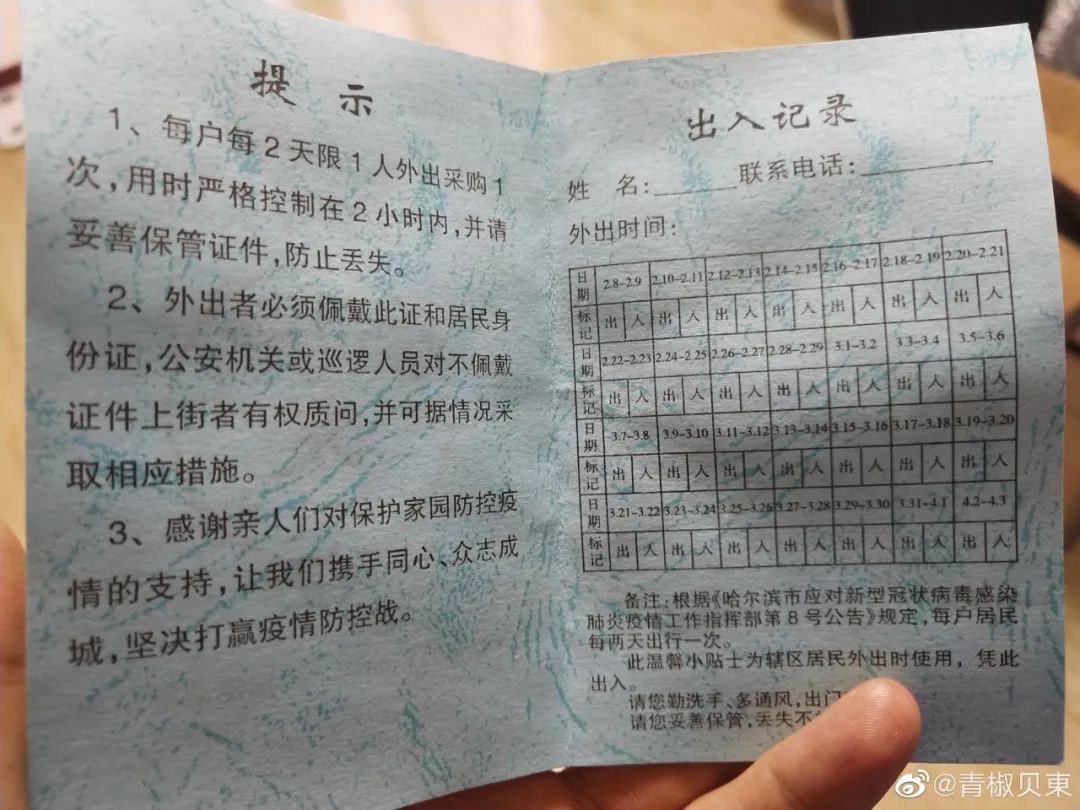 提 示
1、每户每2天限1人外出采购1
次，用时严格控制在2小时内，并请
妥善保管证件，防止丢失。
2、外出者必须佩戴此证和居民身
份证，公安机关或巡逻人员对不佩戴
证件上街者有权质问，并可据情况采
取相应措施。
3、感谢亲人们对保护家园防控疫
情的支持，让我们携手同心、众志成
城，坚决打赢疫情防控战。
出入记录
姓 名：______联系电话：__________
外出时间：
日期 2.8-2.9 2.10-2.11 2.12-2.13 2.14-2.15 2.16-2.17 2.18-2.19 2.20-2.21
标记 出 入 出 入 出 入 出 入 出 入 出 入 出 入
日期 2.22-2.23 2.24-2.25 2.26-2.27 2.28-2.29 3.1-3.2 3.3-3.4 3.5-3.6
标记 出 入 出 入 出 入 出 入 出 入 出 入 出 入
日期 3.7-3.8 3.9-3.10 3.11-3.12 3.13-3.14 3.15-3.16 3.17-3.18 3.19-3.20
标记 出 入 出 入 出 入 出 入 出 入 出 入 出 入
日期 3.21-3.22 3.23-3.24 3.25-3.26 3.27-3.28 3.29-3.30 3.31-4.1 4.2-4.3
标记 出 入 出 入 出 入 出 入 出 入 出 入 出 入
备注：根据《哈尔滨市应对新型冠状病毒感染
肺炎疫情工作指挥部第8号公告》规定，每户居民
每两天出行一次。
此温馨小贴士为辖区居民外出时使用，凭此
出入。
请您勤洗手、多通风，出门
请您妥善保管，丢失不
@青椒贝東